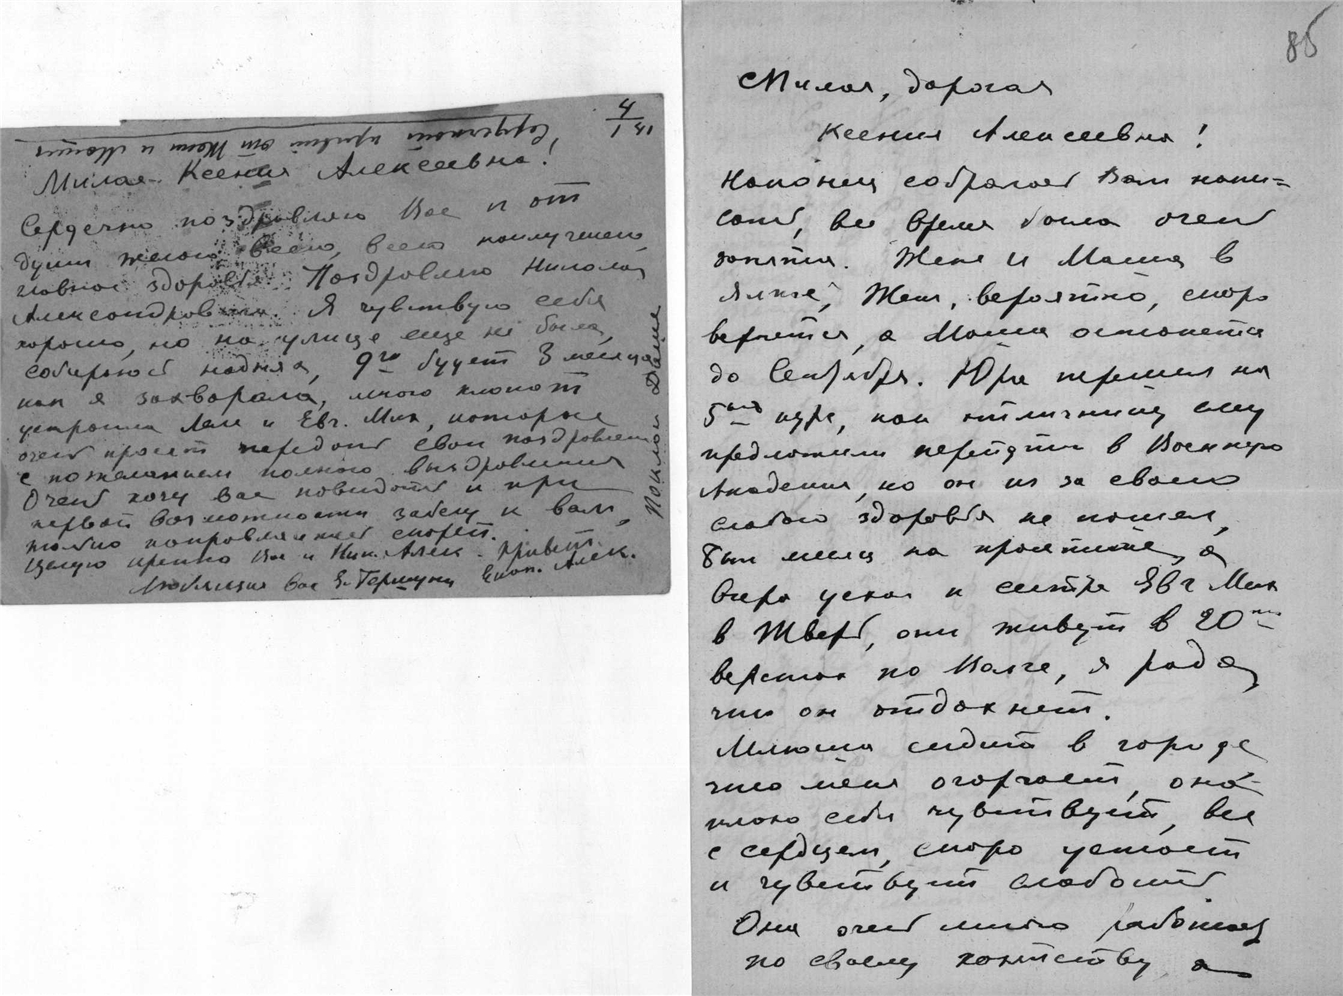 4/I 41
Сердечный привет от Жени и Маши
Милая Ксения Алексеевна!
Сердечно поздравляю Вас и от
души желаю всего, всего наилучшего,
главное здоровья. Поздравляю Николая
Александровича. Я чувствую себя
хорошо, но на улице еще не была,
собираюсь на днях, 9го будет 3 месяца
как я захворала, много хлопот
устроила Ляле и Евг. Мих, которые
очень просят передать свои поздравления
с пожеланием полного выздоровления
Очень хочу Вас повидать и при
первой возможности забегу к вам,
только поправляйтесь скорей.
Целую крепко Вас и Ник. Алек. привет.
Любящая вас Е. Гермуни Екат. Алек.
Поклон Даше
85
Милая, дорогая
Ксения Алексеевна!
Наконец собралась Вам напи=
сать, все время была очень
занята. Женя и Маша в
Ялте, Женя, вероятно, скоро
вернется, а Маша останется
до Сентября. Юра перешел на
5ый курс, как отличнику ему
предложили перейти в Военную
Академию, но он из за своего
слабого здоровья не пошел,
был месяц на практике, а
вчера уехал к сестре Евг Мих
в Тверь, они живут в 20ти
верстах по Волге, я рада
что он отдохнет.
Милюша сидит в городе
что меня огорчает, она
плохо себя чувствует, все
с сердцем, скоро устает
и чувствует слабость
Она очень много работает
по своему хозяйству а